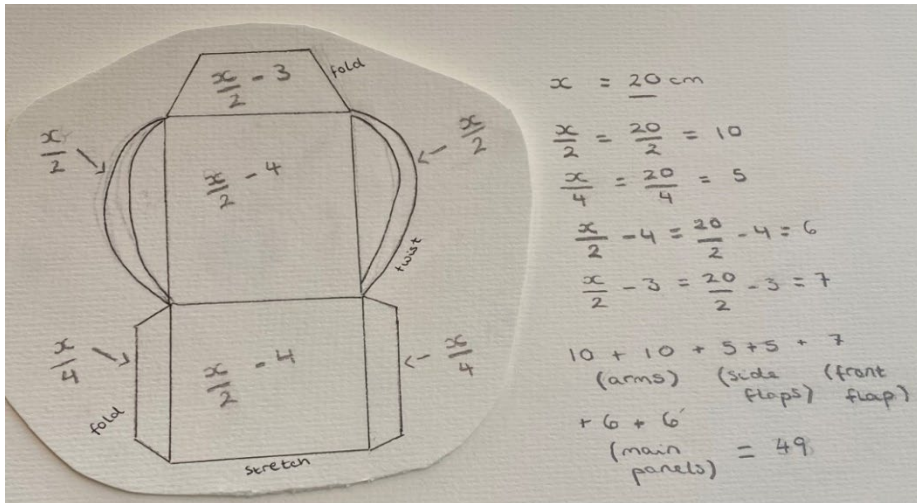 x/2 - 3
fold
x/2
x/2
x/2 - 4
twist
x/4
x/4
x/2 - 4
fold
stretch
x = 20 cm
x/2 = 20/2 = 10
x/4 = 20/4 = 5
x/2 - 4 = 20/2 - 4 = 6
x/2 - 3 = 20/2 - 3 = 7
10 + 10 + 5 + 5 + 7
(arms) (side flaps) (front flap)
+ 6 + 6
(main panels) = 49